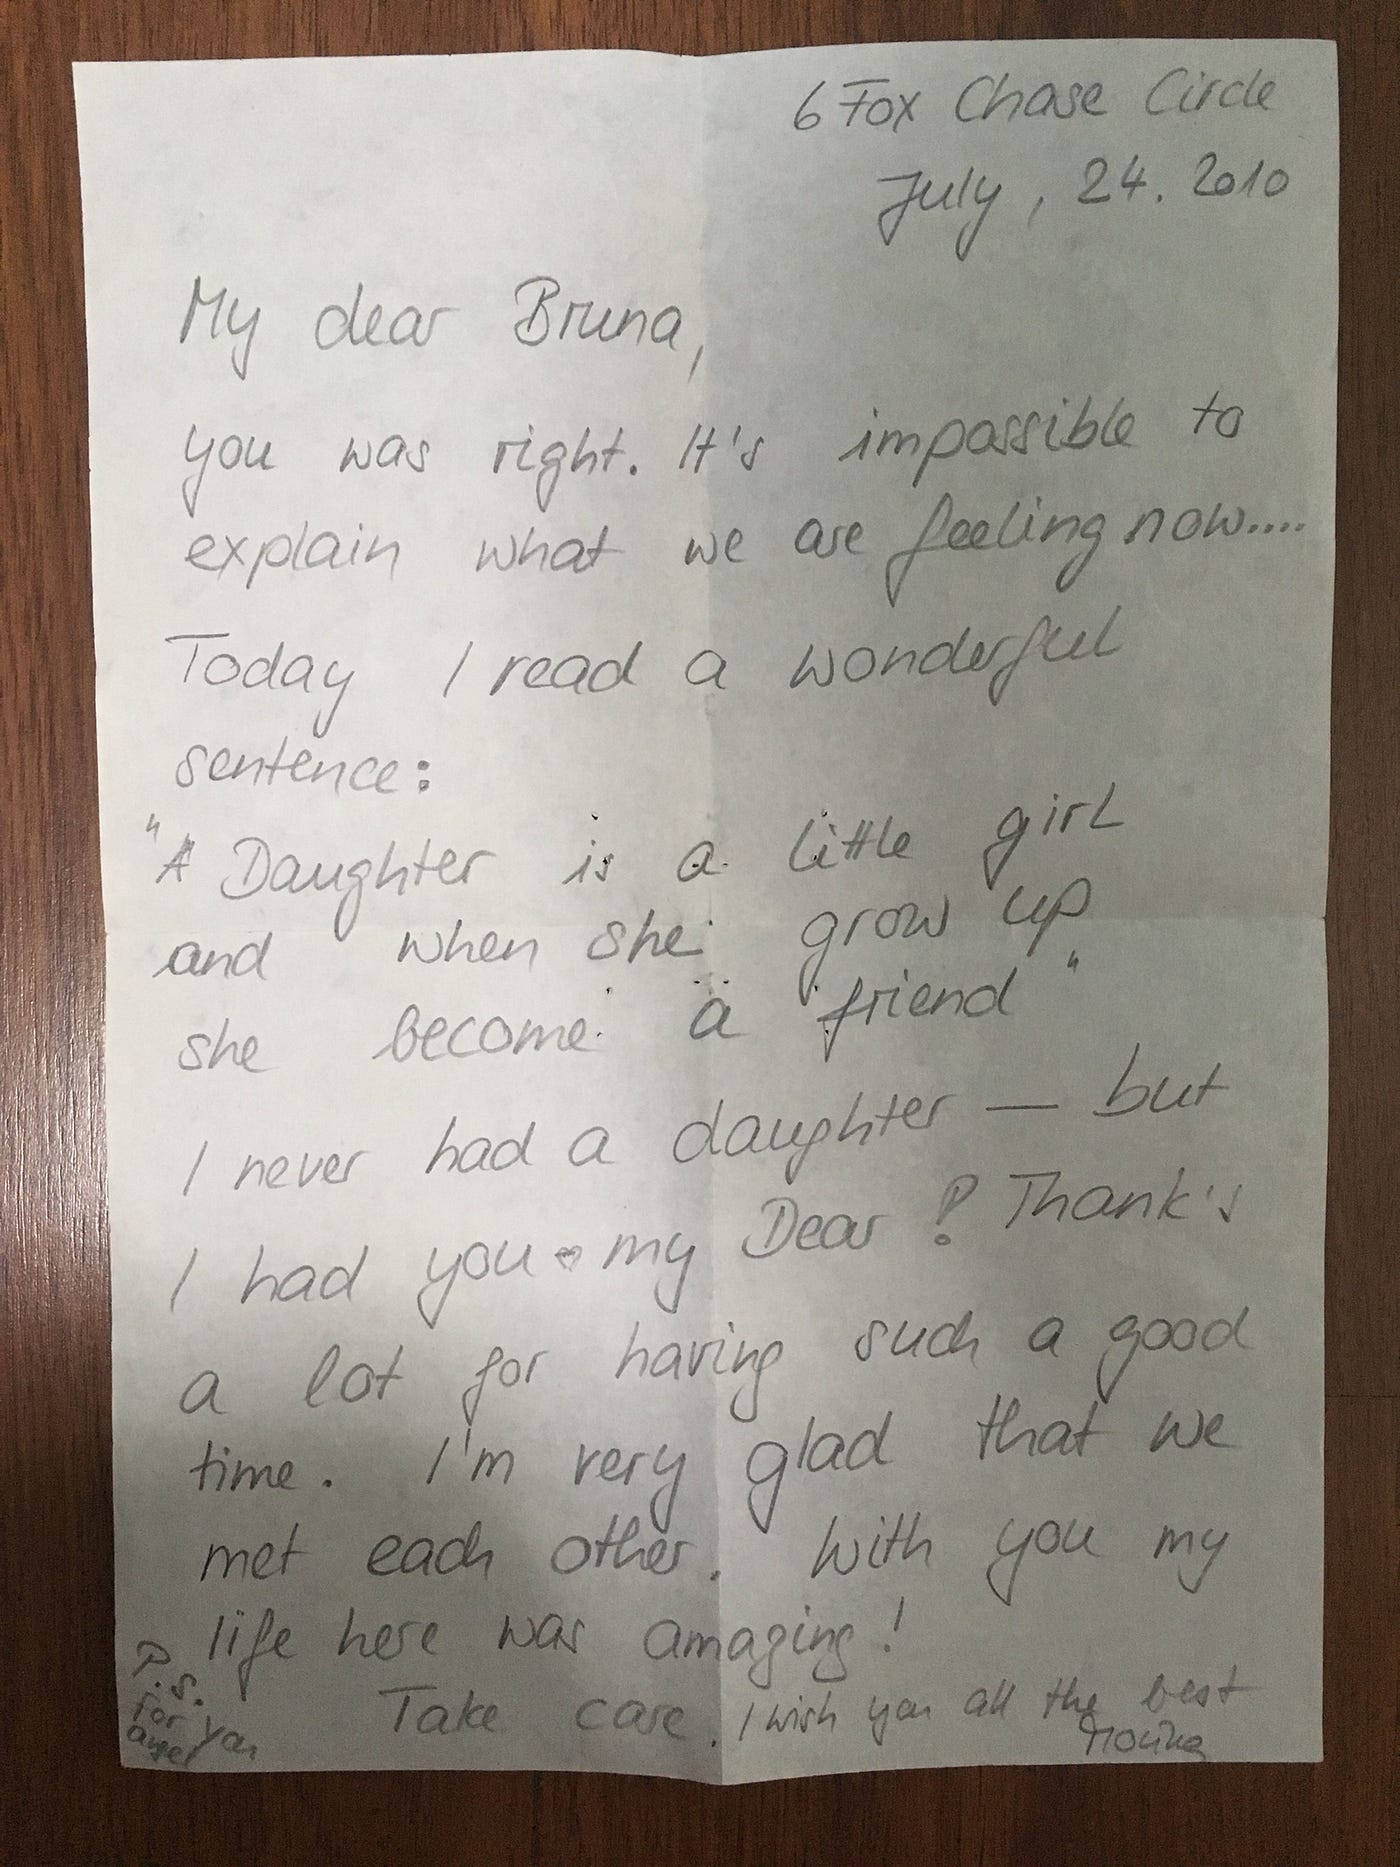 6 Fox Chase Circle
July, 24. 2010
My dear Bruna,
you was right. It's impossible to
explain what we are feeling now....
Today I read a wonderful
sentence:
"A Daughter is a little girl
and when she grow up
she become a friend"
I never had a daughter — but
I had you my Dear! Thank's
a lot for having such a good
time. I'm very glad that we
met each other. With you my
life here was amazing!
Take care. I wish you all the best
P.S.
for you
angel